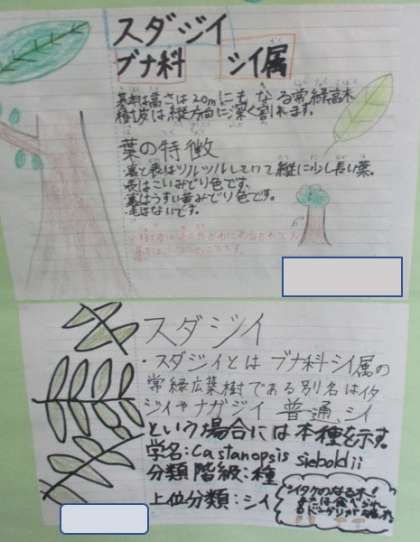 スダジイ
ブナ科 シイ属
高さは20mにもなる常緑高木
樹皮は縦方向に深く割れます。
葉の特徴
裏と表はツルツルしていて縦に少し長い葉。
表はこいみどり色です。
裏はうすい黄みどり色です。
毛はないです。
スダジイ
・スダジイとはブナ科シイ属の
常緑広葉樹である別名はイタ
ジイやナガジイ 普通、シイ
という場合には本種を示す。
学名:Castanopsis sieboldii
分類 階級:種
上位分類:シイ
シイタケのなる木!